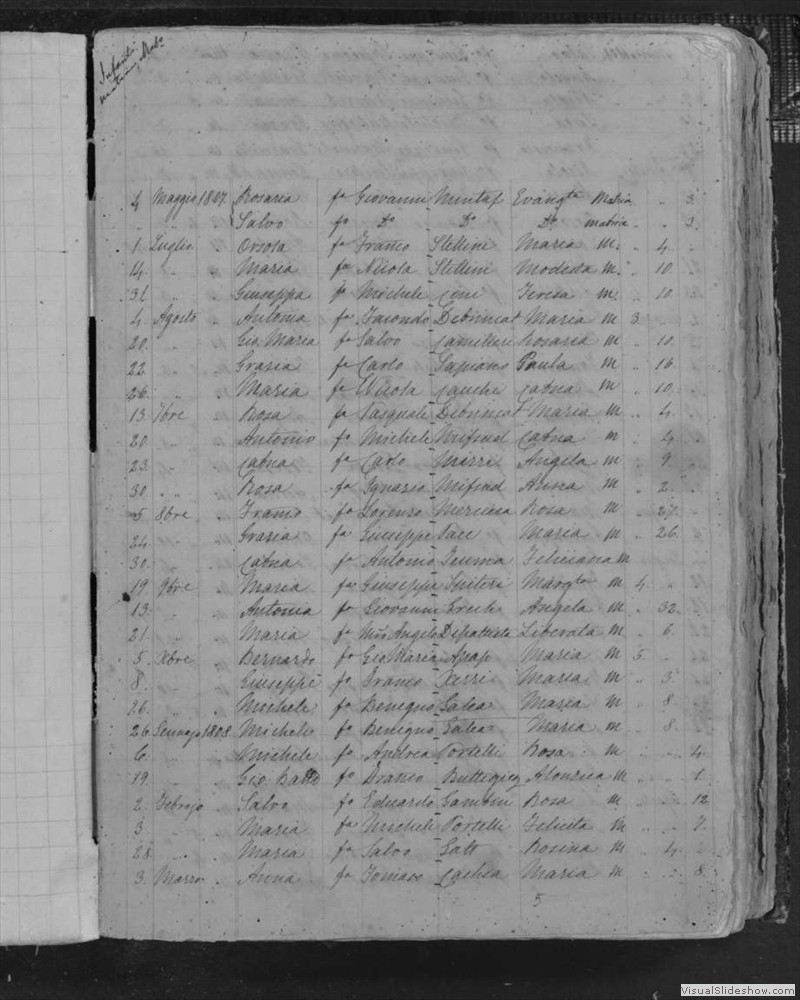 Infanti
4 Maggio 1807. Rosaria fa Giovanni Mintof Evangta Matria " 3
" " " Salvo fo Do Do Do matria " 3
1 Luglio " Orsola fa Franco Stellini Maria m. " 4 "
14 " " Maria fa Nicola Stellini Modesta m. " 10
31 " " Giuseppa fa Michele Teresa m. " 10
4 Agosto " Antonia fa Facondo Debrincat Maria m 3
20 " " Gio Maria fo Salvo Camilleri Rosaria m " 10
22 " " Grazia fa Carlo Sapiano Paula m " 16
26 " " Maria fa Nicola Cauchi Catna m " 10
13 7bre " Rosa fa Pasquale Debrincat Maria m " 4
20 " " Antonio fo Michele Mifsud Catna m " 4
23 " " Catna fa Carlo Angela m " 9
30 " " Rosa fa Ignazio Mifsud m " 2
5 8bre " Franco fo Lorenzo Mercieca Rosa m " 27
24 " " Grazia fa Giuseppe Pace Maria m " 26
30 " " Catna fa Antonio Feliciana m
19 9bre " Maria fa Giuseppe Spiteri Margta m 4 "
13 " " Antonia fa Giovanni Grech Angela m " 32
21 " " Maria fa Mro Angelo Liberata m " 6
5 Xbre " Bernardo fo Gio Maria Apap Maria m 5
8 " " Giuseppe fo Franco Xerri Maria m " 3
26 " " Michele fo Benigno Galea Maria m " 8
26 Gennajo 1808 Michele fo Benigno Galea Maria m " 8
6 " " Michele fo Andrea Portelli Rosa m " " 4
19 " " Gio Batta fo Franco Buttigieg m " " 1
2 Febrajo " Salvo fo Eduardo Gambin Rosa m " " 12
3 " " Maria fa Michele Portelli Felicita m " " 7
28 " " Maria fa Salvo Galt Rosina m " 4
3 Marzo " Anna fa Tomaso Cachia Maria m " " 8
5
VisualSlideshow.com